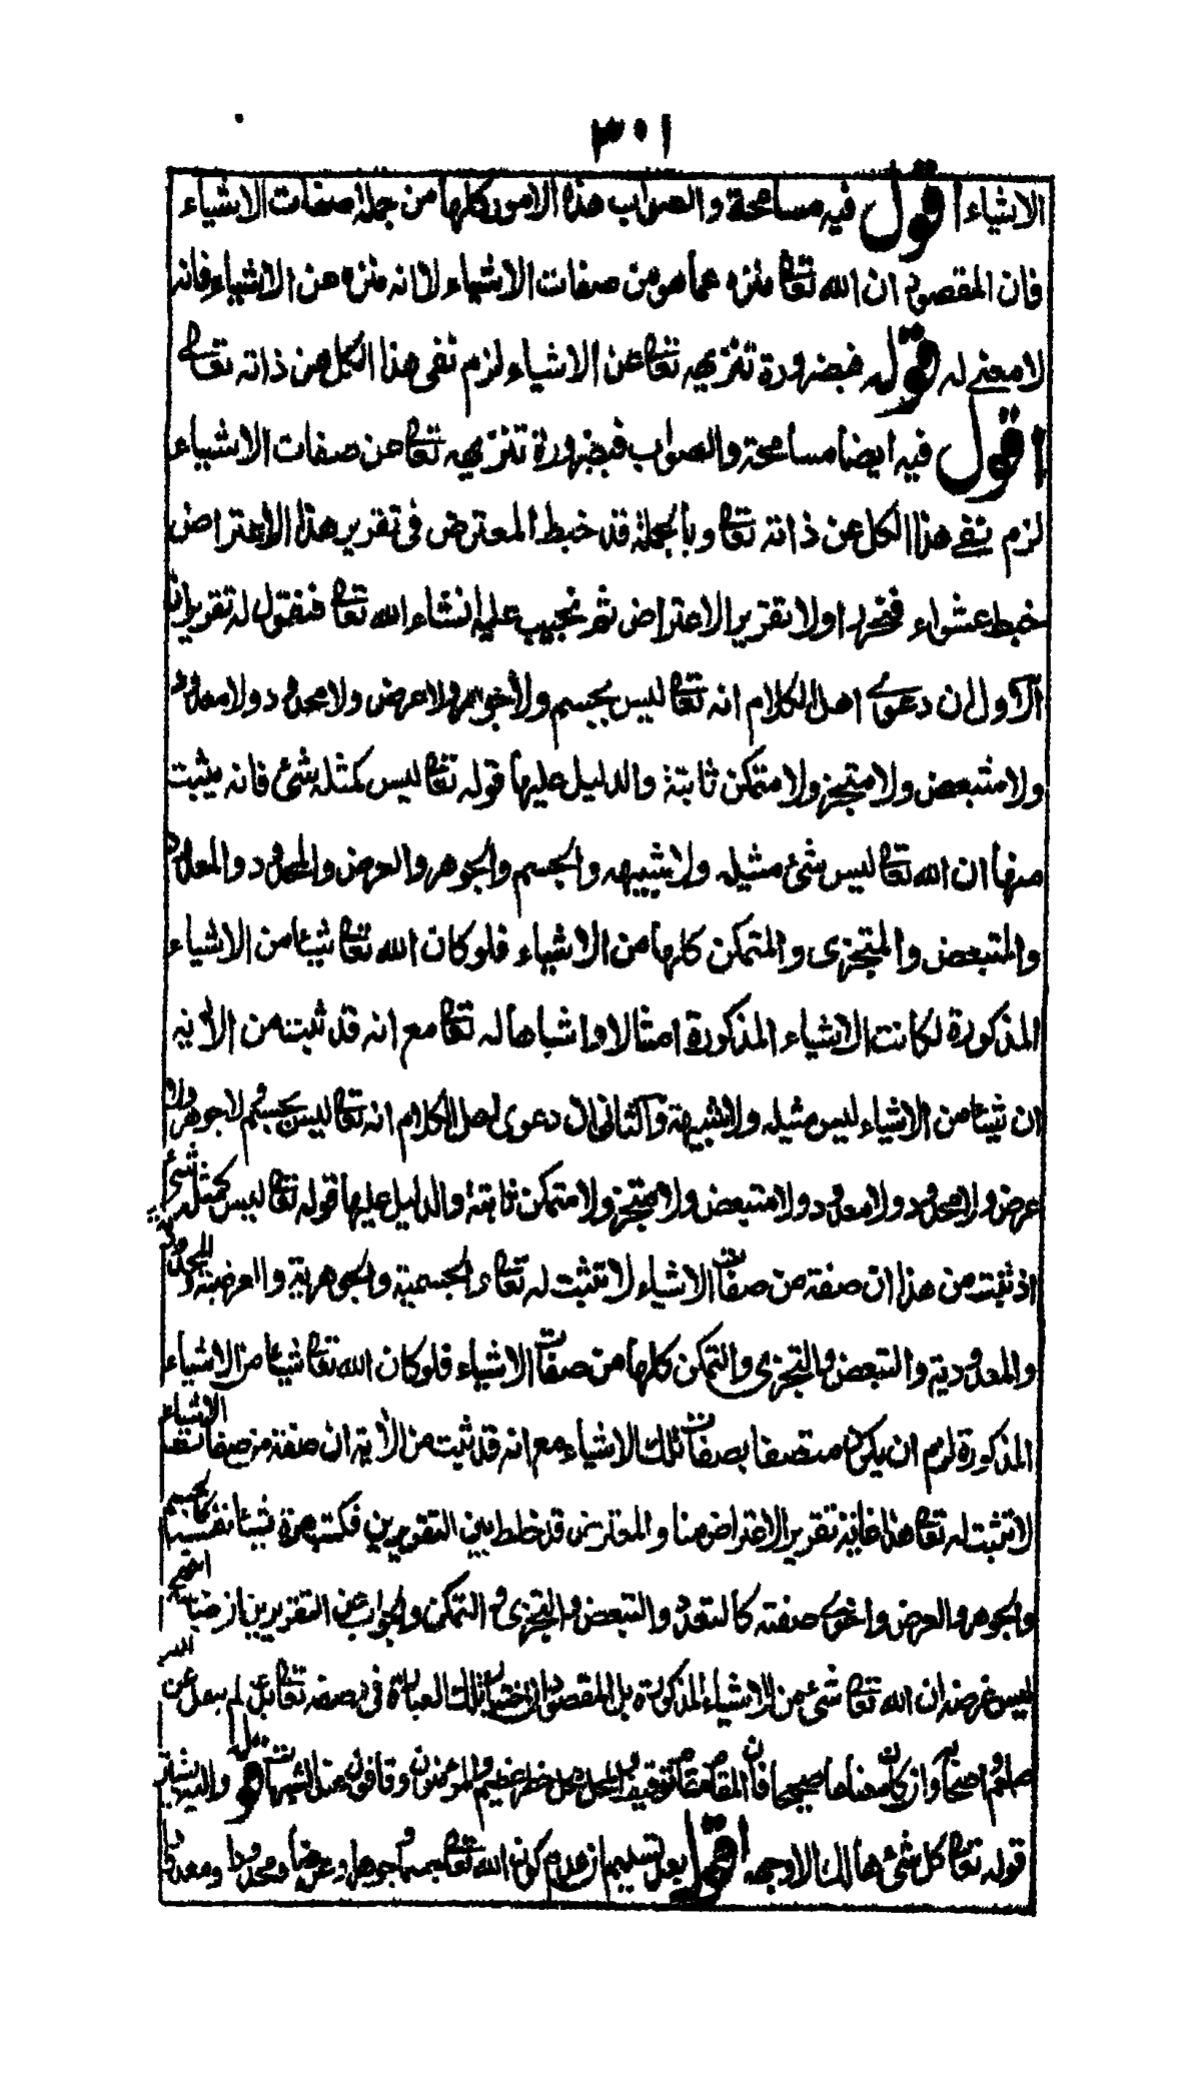 ٣٠١
الاشياء اقول فيه مسامحة والصواب هذه الامور كلها من جملة صفات الاشياء
فان المقصود ان الله تعالى منزه عما هو من صفات الاشياء لا انه منزه عن الاشياء فانه
لا معنى له قوله فبضرورة تنزيهه تعالى عن الاشياء لزم نفى هذا الكل عن ذاته تعالى
اقول فيه ايضا مسامحة والصواب فبضرورة تنزيهه تعالى عن صفات الاشياء
لزم نفى هذا الكل عن ذاته تعالى وبالجملة قد خبط المعترض فى تقرير هذا الاعتراض
خبط عشواء فنحرر اولا تقرير الاعتراض ثم نجيب عليه انشاء الله تعالى فنقول له تقريران
الاول ان دعوى اهل الكلام انه تعالى ليس بجسم ولا جوهر ولا عرض ولا محدود ولا معدود
ولا متبعض ولا متجز ولا متمكن ثابتة والدليل عليها قوله تعالى ليس كمثله شئ فانه يثبت
منها ان الله تعالى ليس شئ مثيله ولا شبيهه والجسم والجوهر والعرض والمحدود والمعدود
والمتبعض والمتجزى والمتمكن كلها من الاشياء فلو كان الله تعالى شيئا من الاشياء
المذكورة لكانت الاشياء المذكورة امثالا واشباها له تعالى مع انه قد ثبت من الأية
ان شيئا من الاشياء ليس مثيله ولا شبيهة والثانى ان دعوى اهل الكلام انه تعالى ليس بجسم ولا جوهر ولا
عرض ولا محدود ولا معدود ولا متبعض ولا متجز ولا متمكن ثابتة والدليل عليها قوله تعالى ليس كمثله شئ
اذ ثبت من هذا ان صفة من صفات الاشياء لا تثبت له تعالى والجسمية والجوهرية والعرضية والمحدودية
والمعدودية والتبعض والتجزى والتمكن كلها من صفات الاشياء فلو كان الله تعالى شيئا من الاشياء
المذكورة لزم ان يكون متصفا بصفات تلك الاشياء مع انه قد ثبت من الأية ان صفة من صفات الاشياء
لا تثبت له تعالى هذا غاية تقرير الاعتراض منا والمعترض قد خلط بين التقريرين فكتب مرة شيئا نفسه كالجسم
والجوهر والعرض واخرى صفته كالتعدد والتبعض والتجزى والتمكن والجواب عن التقريرين
ليس غرضه ان الله تعالى شئ من الاشياء المذكورة بل المقصود ان اختيار تلك العبارة فى وصفه تعالى
وان كان معناها صحيحا فان المقام مقام توقيف
قوله تعالى كل شئ هالك الا وجهه اقول بعد تسليم ان عدم كون الله تعالى جسما وجوهرا وعرضا ومحدودا ومعدودا